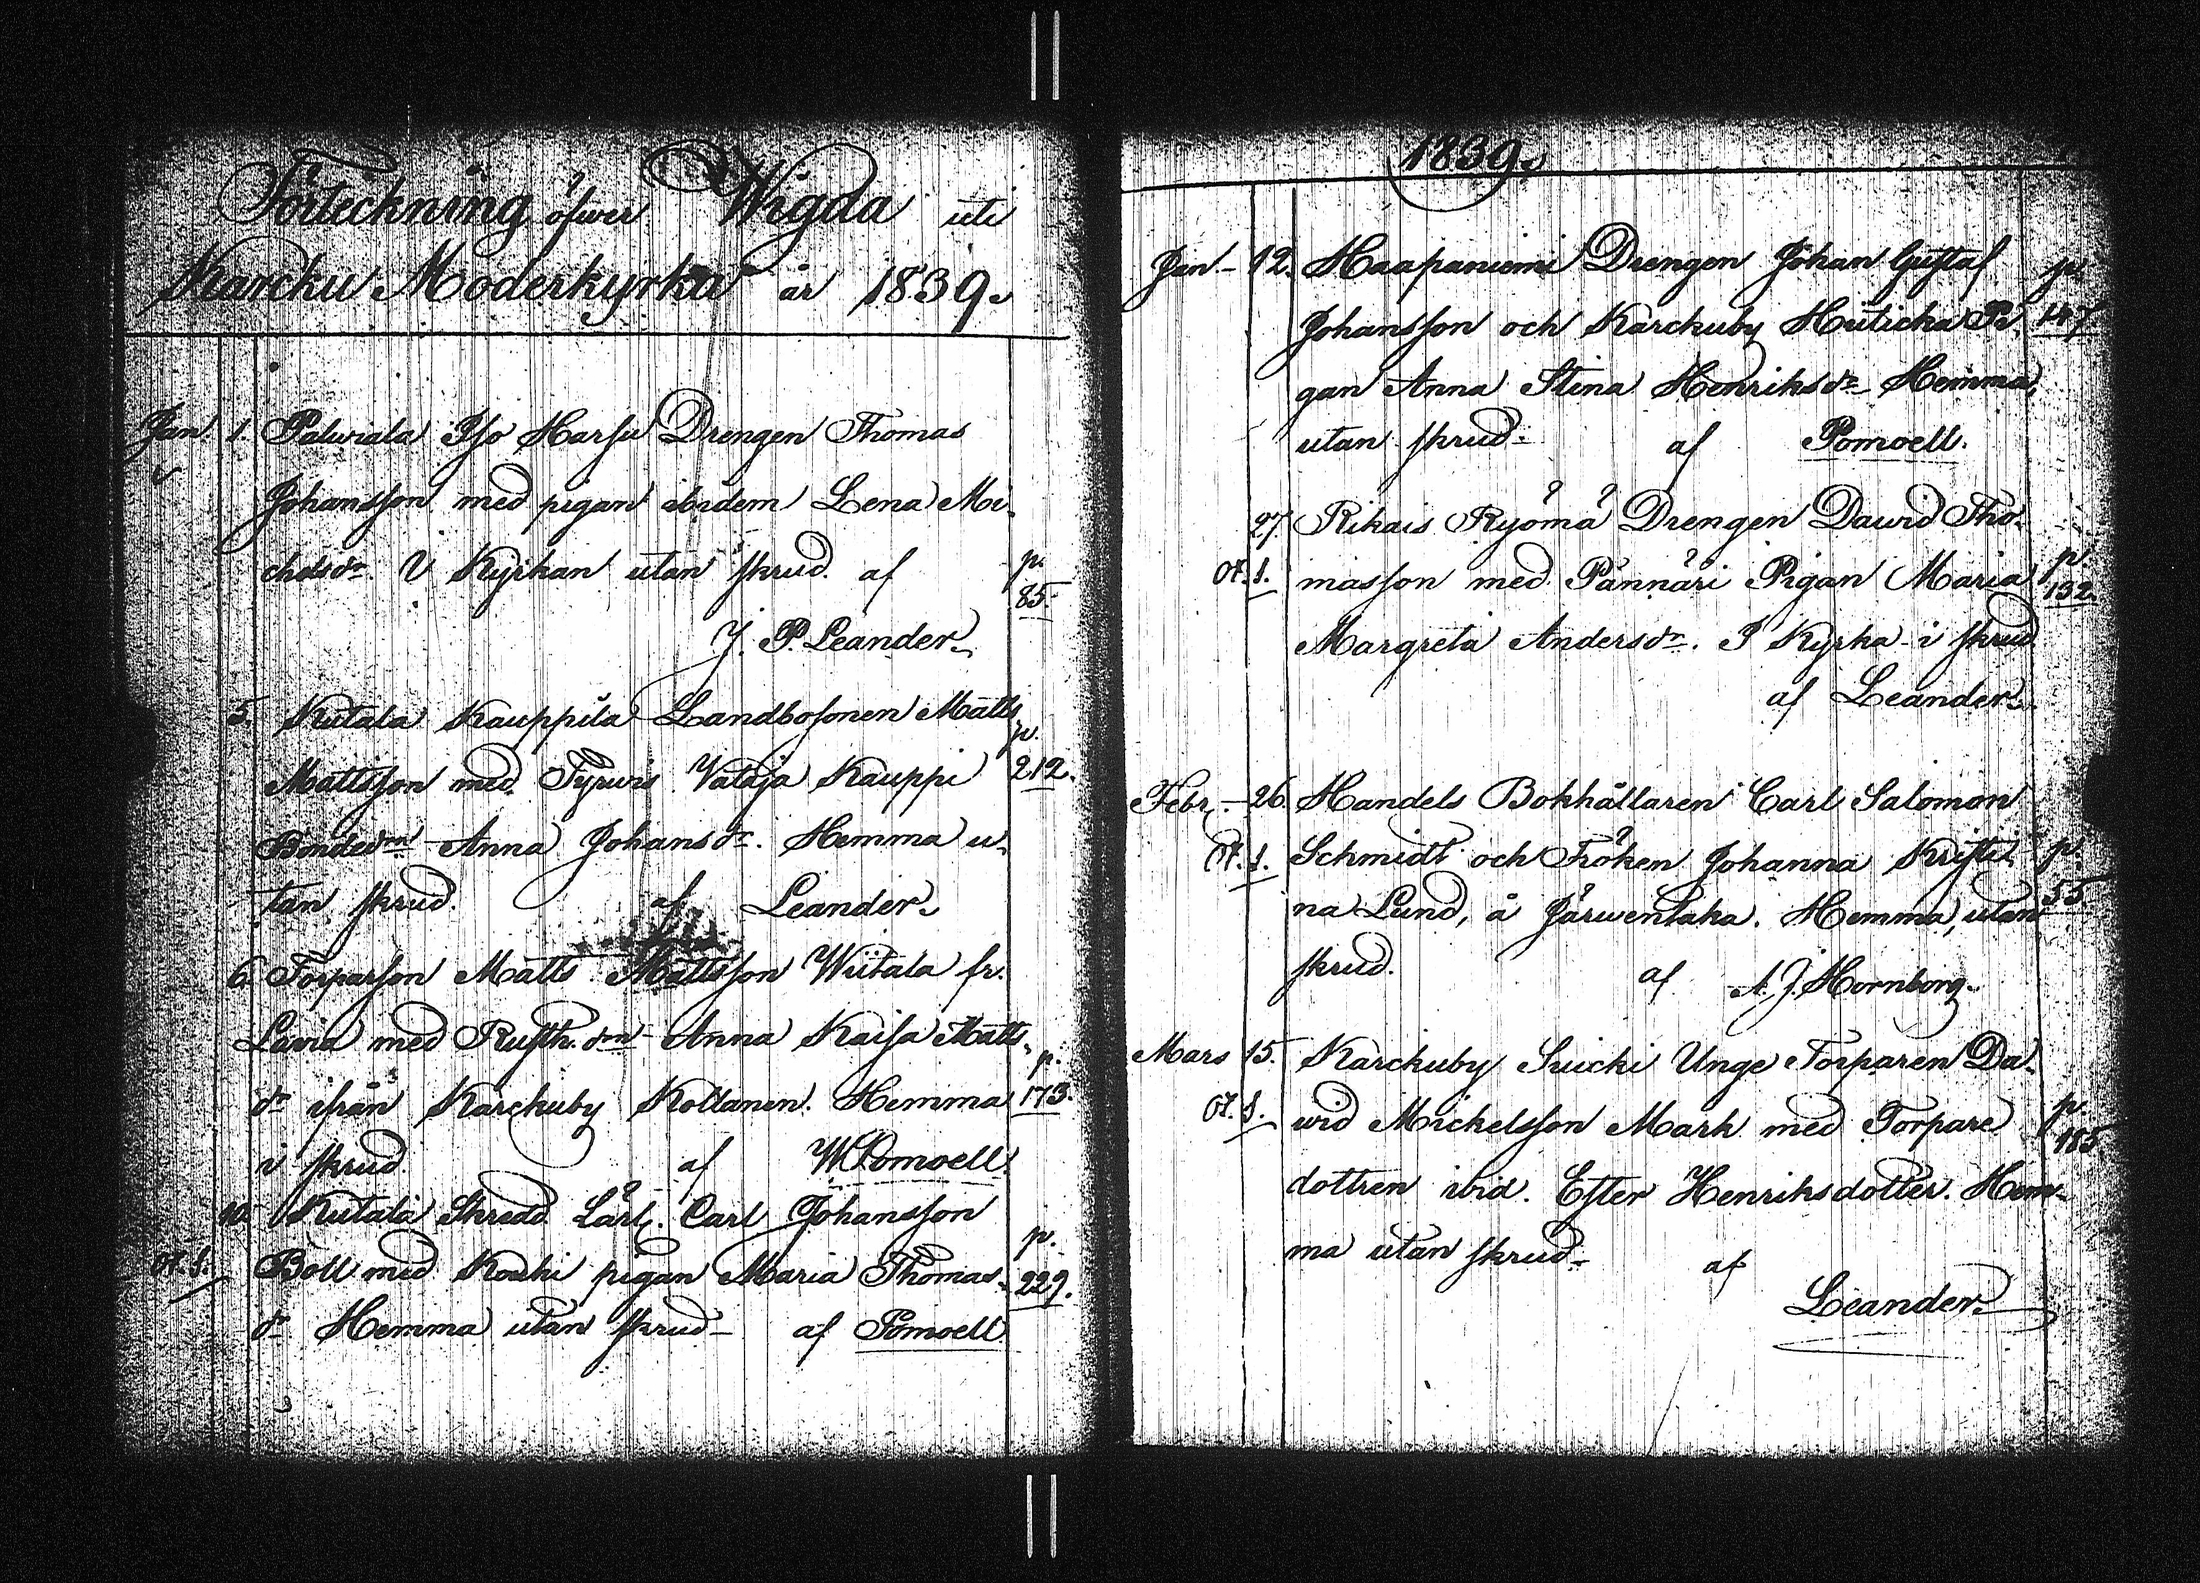 Förteckning öfwer Wigda uti
Karcku Moderkyrka år 1839.
Jan. 1. Paluiala Iso Harsu Drengen Thomas
Johansson med pigan ibidem Lena Mi-
chelsdr. I Kyrkan utan skrud. af p. 85.
J. P. Leander.
5. Kutala Kauppila Landbosonen Matts p.
Mattsson med Tyrwis Vataja Kauppi 212.
Bondedrn Anna Johansdr. Hemma u-
tan skrud. af Leander.
6. Torparson Matts Mattsson Wiitala fr.
Lavia med Rusth. drn Anna Kaisa Matts- p.
dr ifrån Karckuby Koltanen. Hemma 173.
i skrud af W Pomoell.
10. Kutala Skredd. Lärl. Carl Johansson p.
Of. S. Böll med Koski pigan Maria Thomas- 229.
dr Hemma utan skrud- af Pomoell.
1839.
Jan - 12. Haapaniemi Drengen Johan Gustaf p.
Johansson och Karckuby Huticka Pi- 147
gan Anna Stina Henriksdr Hemma,
utan skrud- af Pomoell.
27. Rikais Ryömä Drengen Dawid Tho-
Of. S. masson med Pännäri Pigan Maria p. 132.
Margreta Andersdr. I Kyrka i skrud
af Leander.
Febr. - 26. Handels Bokhållaren Carl Salomon
Of. S. Schmidt och Fröken Johanna Kristi- p.
na Lund, å Järwentaka. Hemma, utan 55
skrud. af A. J. Hornborg.
Mars 15. Karckuby Suicki Unge Torparen Da-
Of. S. wid Mickelsson Mark med Torpare p. 185
dottren ibid. Ester Henriksdotter. Hem-
ma utan skrud- af
Leander.